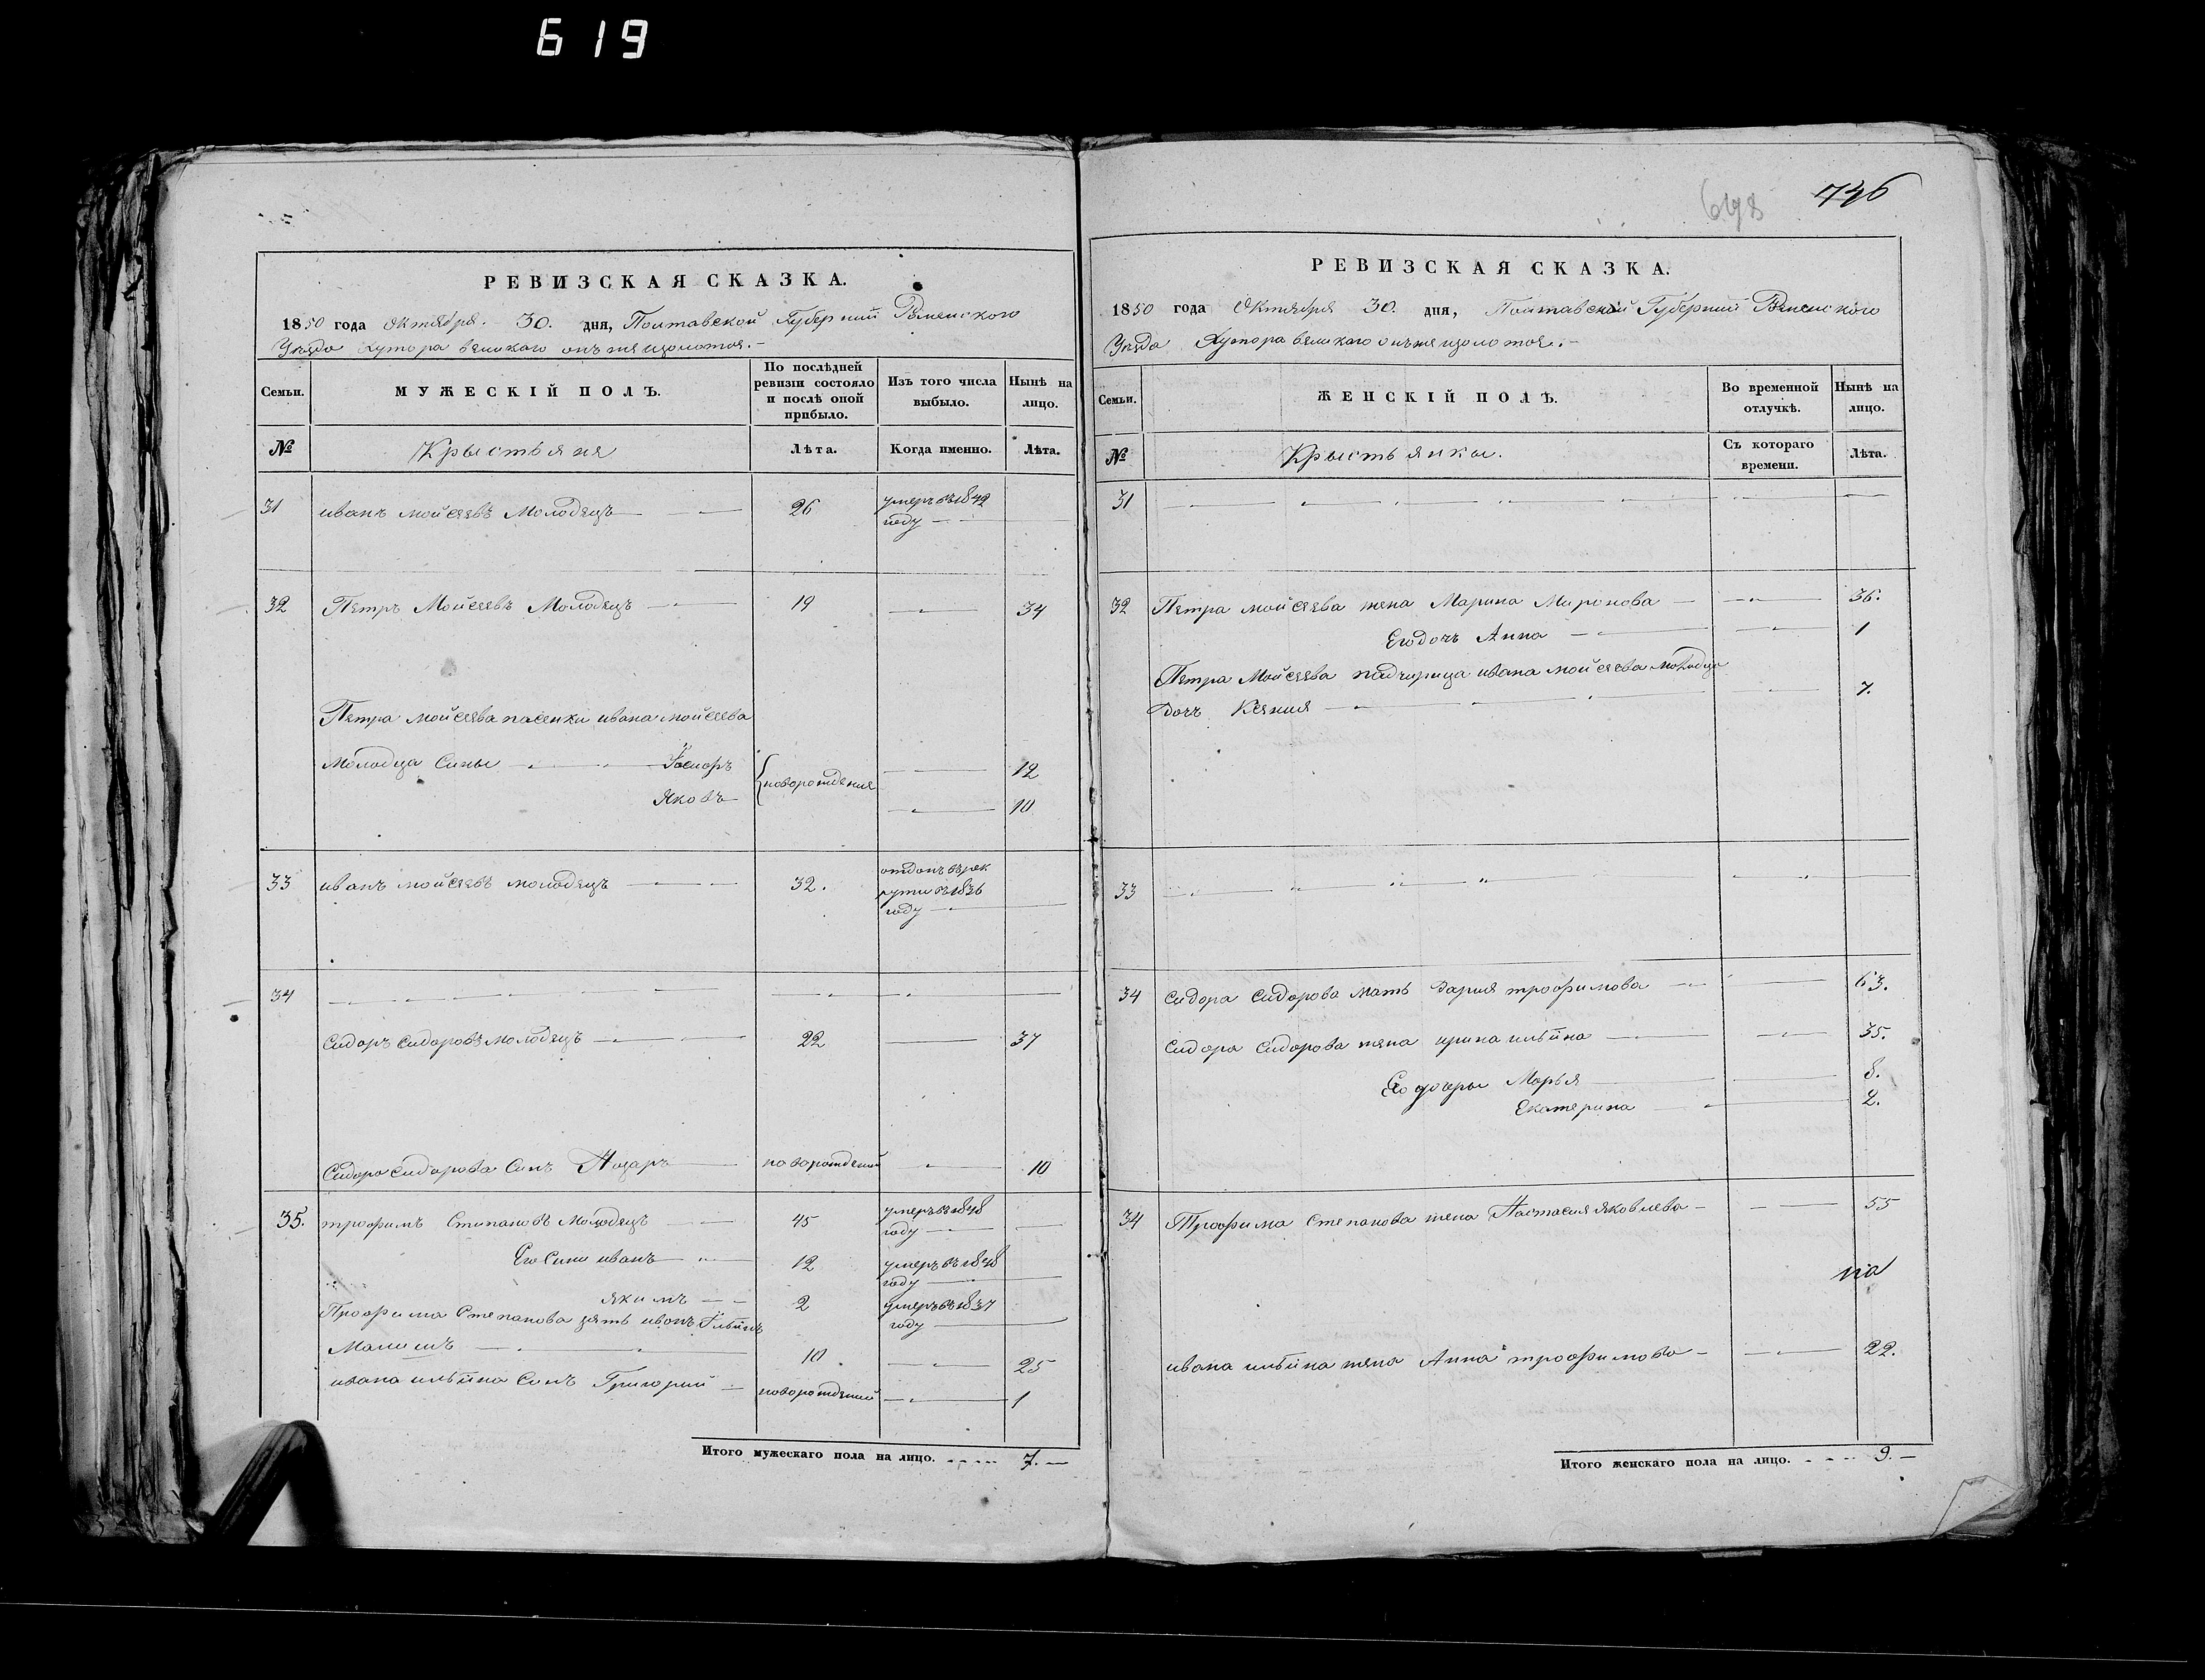 619
РЕВИЗСКАЯ СКАЗКА.
1850 года Октября. 30. дня, Полтавской Губерний Роменского
Уезда Хутора великого
Семьи.
МУЖЕСКІЙ ПОЛЪ.
По послѣдней ревизіи состояло и послѣ оной прибыло.
Изъ того числа выбыло.
Нынѣ на лицо.
№
Крыстьяня
Лѣта.
Когда именно.
Лѣта.
31 иванъ мойсеевъ Молодецъ 26 умеръ въ 1842
году
32 Петръ Мойсеевъ Молодецъ 19 34
Петра мойсеева пасенки ивана мойсеева
Молодца Сины
новорождения 12
Яковъ 10
33 иванъ мойсеевъ молодецъ 32. отданъ въ рек
рути въ 1836
году
34
Сидоръ Сидоровъ молодецъ 22 37
Сидора Сидорова Синъ Назаръ новорождений 10
35. трофимъ Степановъ Молодецъ 45 умеръ въ 1848
году
Его Сини иванъ 12 умеръ въ 1848
году
якимъ 2 умеръ въ 1837
году
Трофима Степанова зять иванъ Ільїнъ
10 25
ивана ильїна Синъ Григорий новорождений 1
Итого мужескаго пола на лицо. 7.
698
746
РЕВИЗСКАЯ СКАЗКА.
1850 года Октября 30. дня, Полтавской Губерний Роменского
Уезда Хутора великого
Семьи.
ЖЕНСКІЙ ПОЛЪ.
Во временной отлучкѣ.
Нынѣ на лицо.
№
Крыстьянки.
Съ котораго времени.
Лѣта.
31
32 Петра мойсеева жена Марина Миронова 36.
Его дочъ Анна 1
Петра Мойсеева падчирица ивана мойсеева молодца
дочъ Ксения 7.
33
34 Сидора Сидорова мать дария трофимова 63.
Сидора Сидорова жена ирина ильїна 35.
Его дочеры Марья 8.
Екатерина 2.
34 Трофима Степанова жена Настасия яковлева 55
на
ивана ильїна жена Анна трофимова 22.
Итого женскаго пола на лицо. 9.